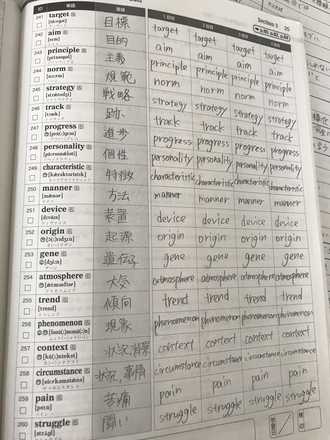 Section 3 25
241 target 目標 target target target target
242 aim 目的 aim aim aim aim
243 principle 主義 principle principle principle principle
244 norm 規範 norm norm norm norm
245 strategy 戦略 strategy strategy strategy strategy
246 track 跡、 track track track track
247 progress 進歩 progress progress progress progress
248 personality 個性 personality personality personality personality
249 characteristic 特徴 characteristic characteristic characteristic characteristic
250 manner 方法 manner manner manner manner
251 device 装置 device device device device
252 origin 起源 origin origin origin origin
253 gene 遺伝子 gene gene gene gene
254 atmosphere 大気 atmosphere atmosphere atmosphere atmosphere
255 trend 傾向 trend trend trend trend
256 phenomenon 現象 phenomenon phenomenon phenomenon phenomenon
257 context 状況,背景 context context context context
258 circumstance 状況,事情 circumstance circumstance circumstance circumstance
259 pain 苦痛 pain pain pain pain
260 struggle 闘い struggle struggle struggle struggle